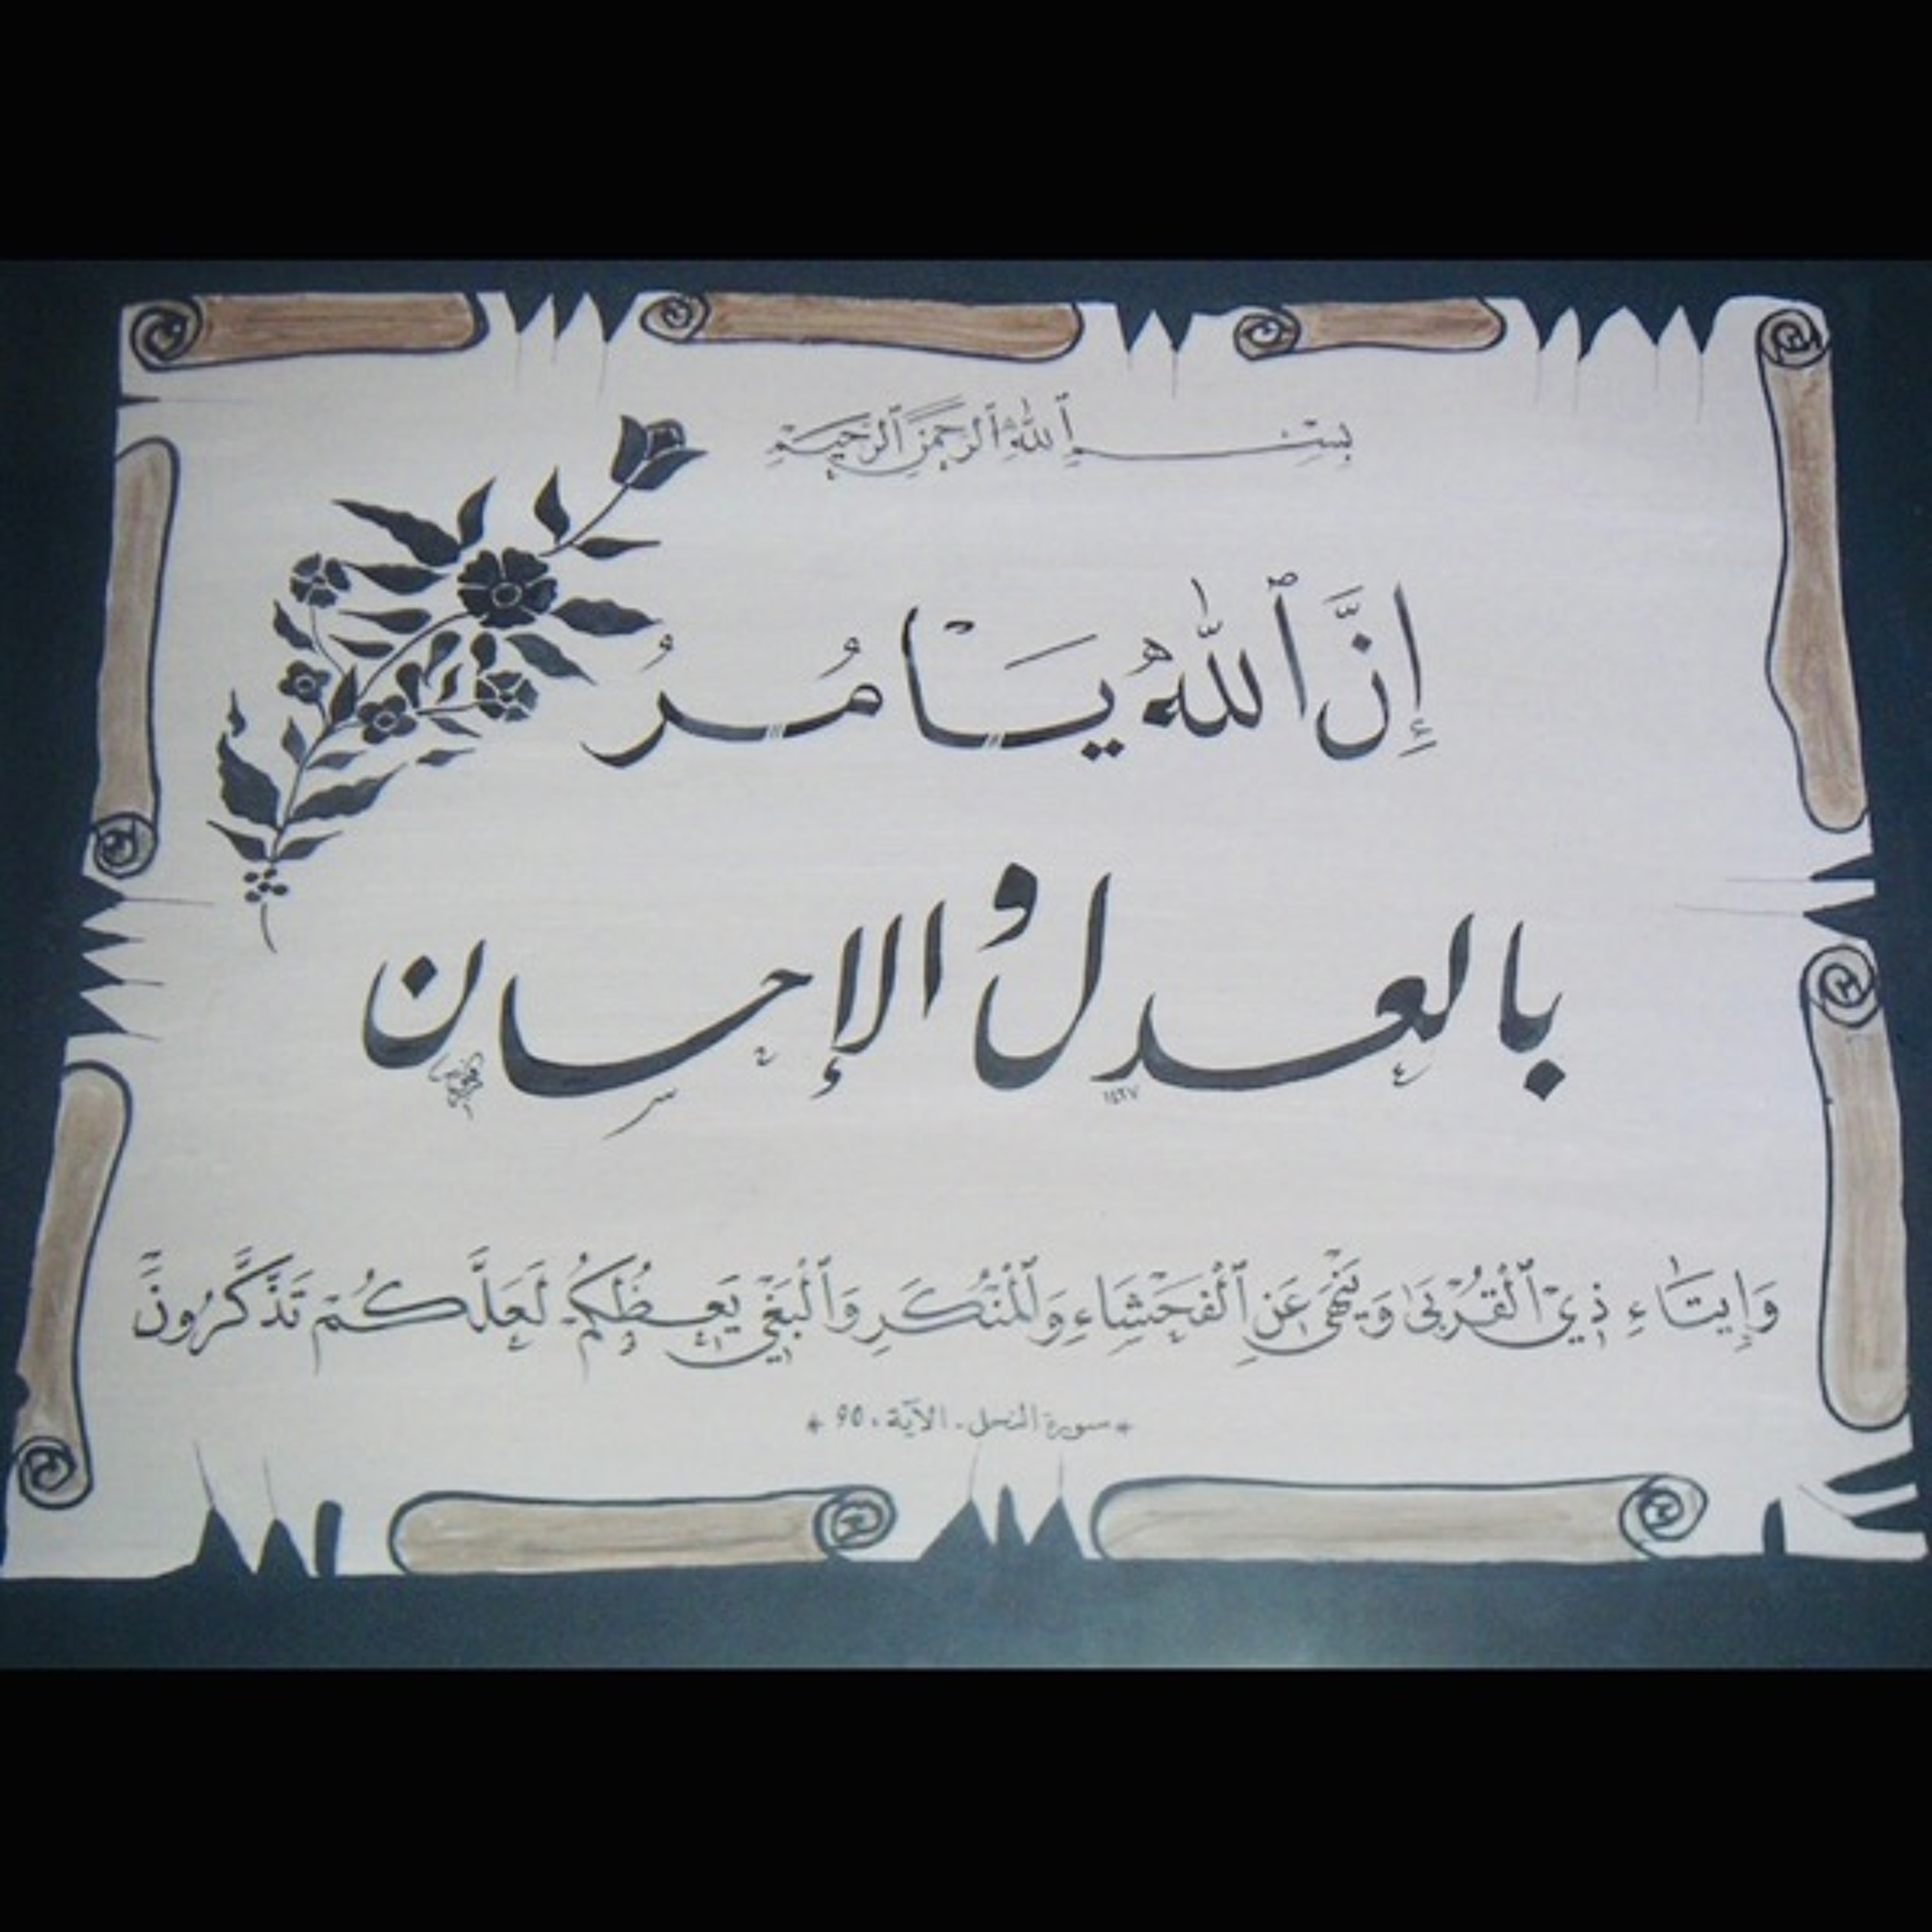 بِسْمِ ٱللهِ ٱلرَّحْمٰنِ ٱلرَّحِيمِ
إِنَّ ٱللّٰهَ يَأْمُرُ
بالعدل والإحسان
١٤٢٧
وَإِيتَاءِ ذِي ٱلْقُرْبَىٰ وَيَنْهَىٰ عَنِ ٱلْفَحْشَاءِ وَٱلْمُنْكَرِ وَٱلْبَغْيِ يَعِظُكُمْ لَعَلَّكُمْ تَذَكَّرُونَ
* سورة النحل - الآية ٩٥٠ *